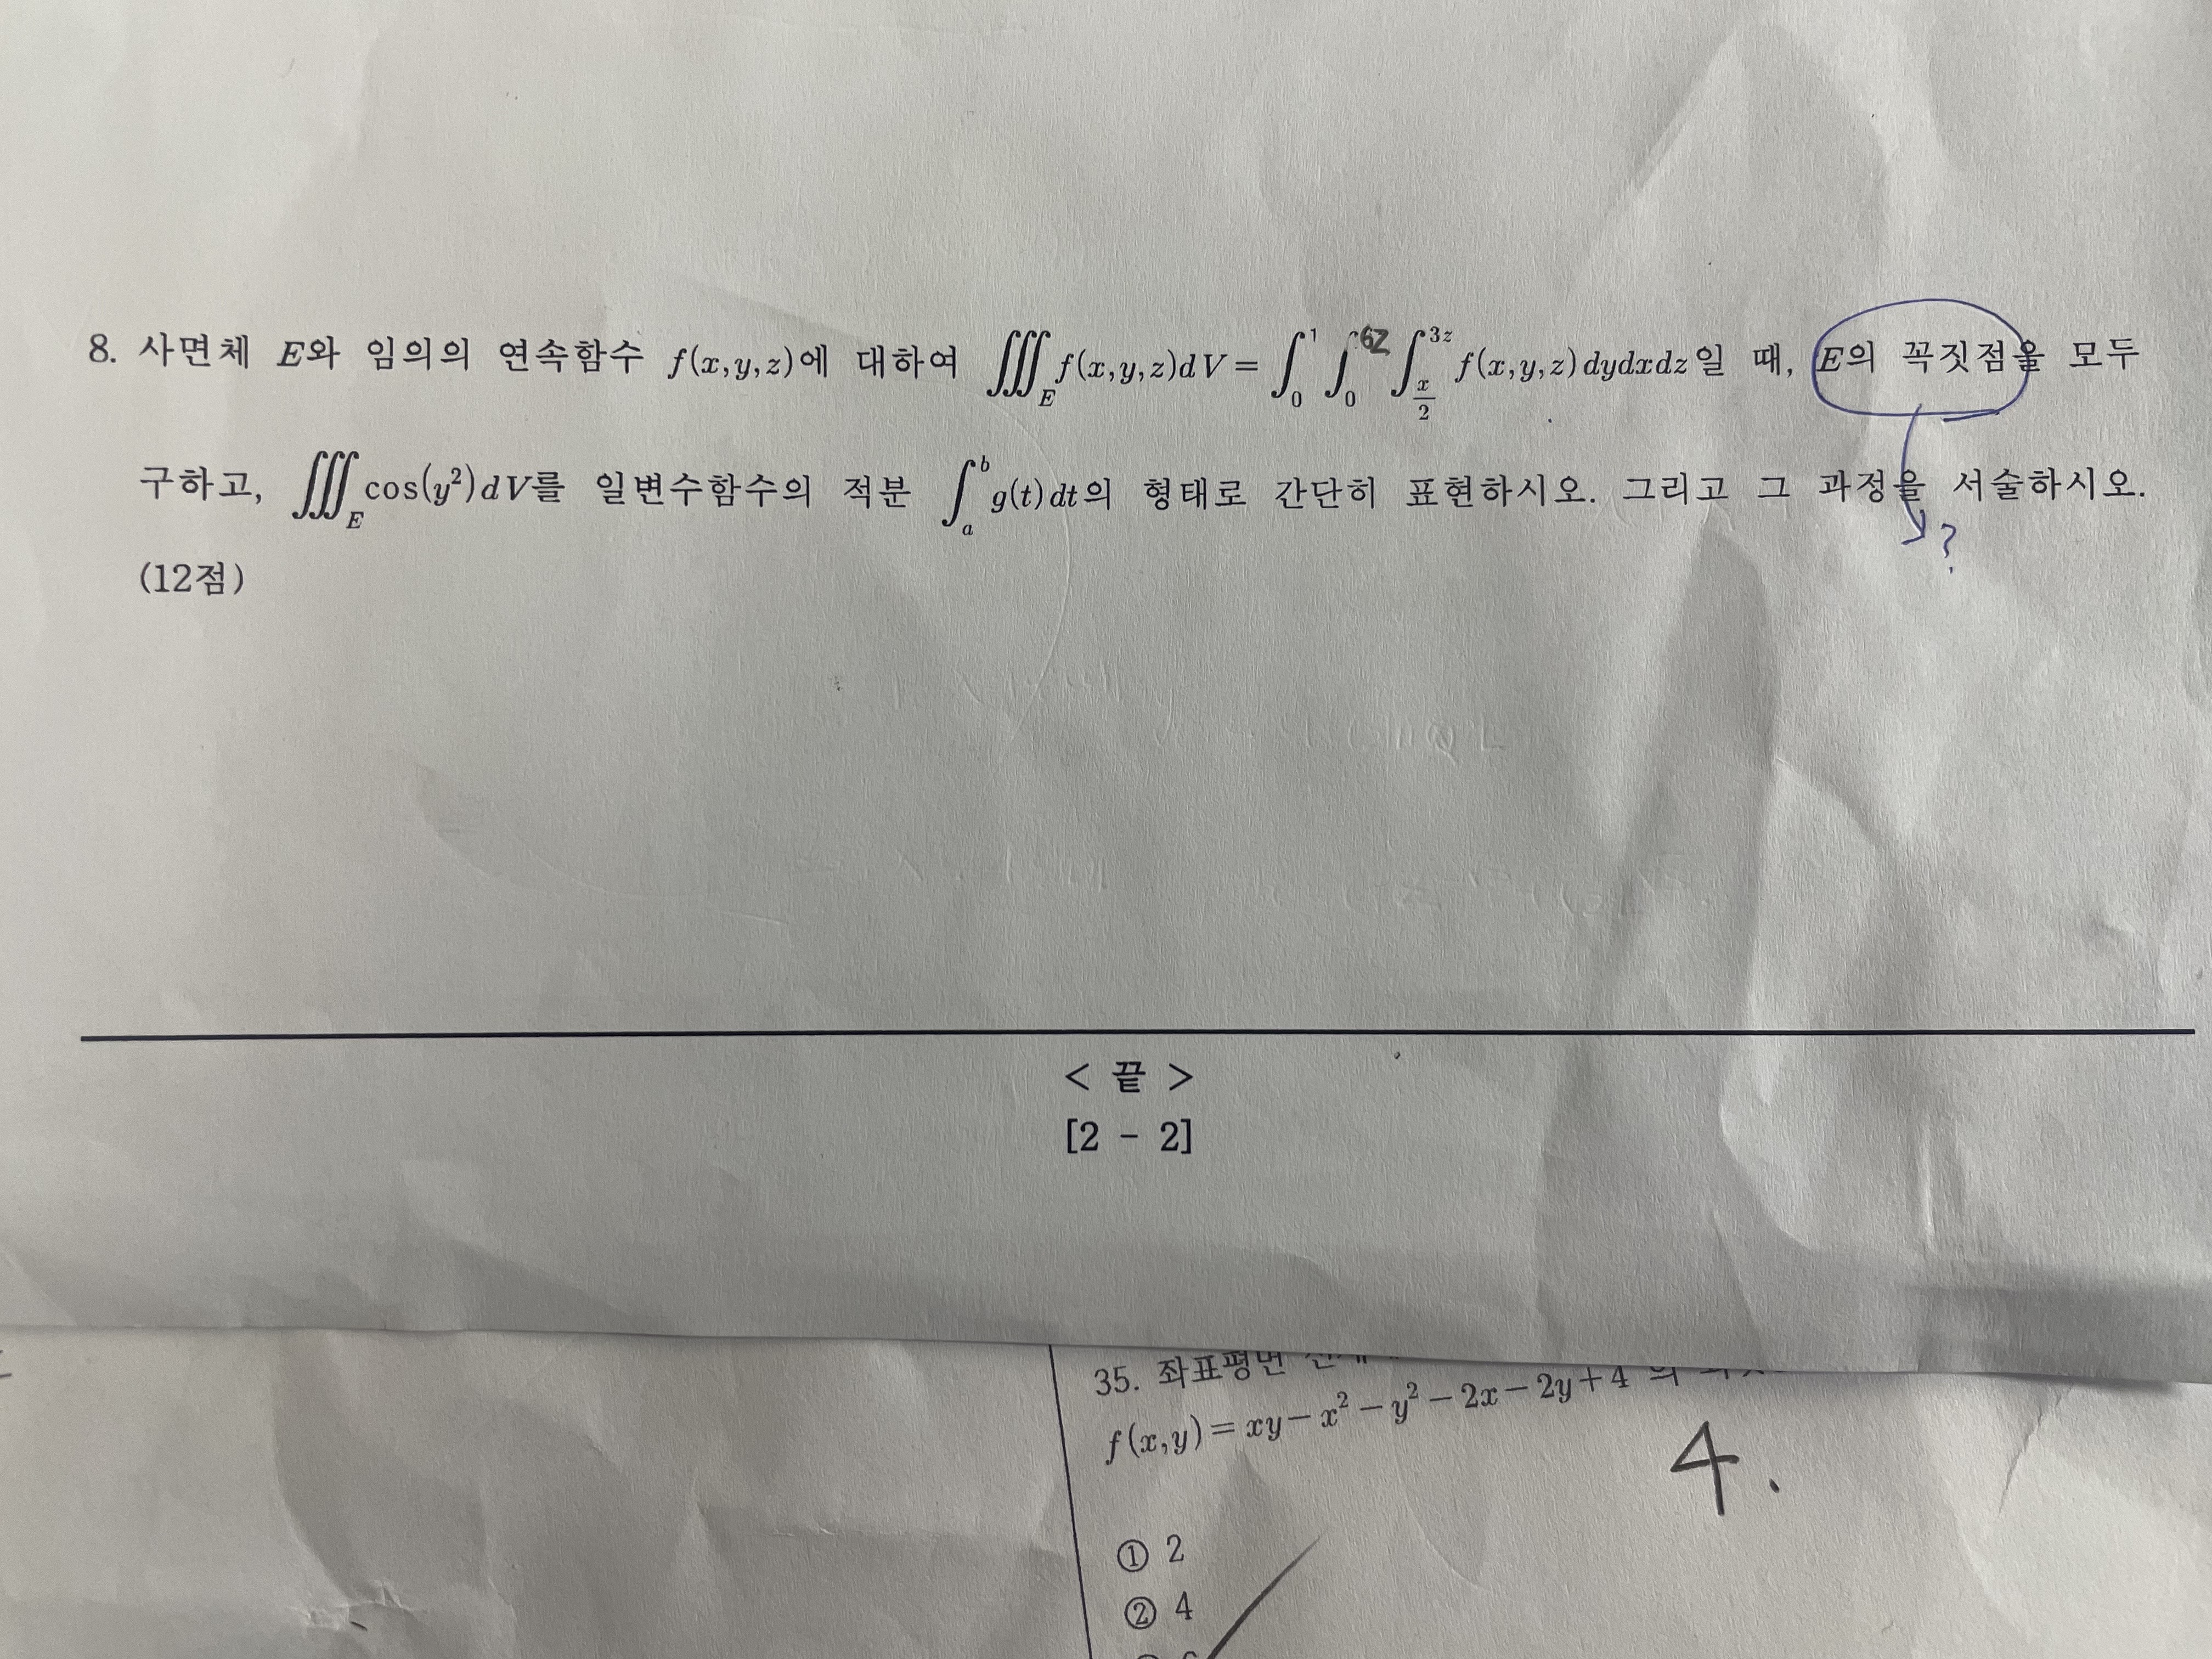 8. 사면체 E와 임의의 연속함수 f(x,y,z)에 대하여 ∭_E f(x,y,z)dV = ∫_0^1 ∫_0^{6z} ∫_{x/2}^{3z} f(x,y,z)dydxdz일 때, E의 꼭짓점을 모두
구하고, ∭_E cos(y²)dV를 일변수함수의 적분 ∫_a^b g(t)dt의 형태로 간단히 표현하시오. 그리고 그 과정을 서술하시오.
?
(12점)
< 끝 >
[2 - 2]
35. 좌표평면
f(x,y)=xy-x²-y²-2x-2y+4 의
4.
① 2
② 4